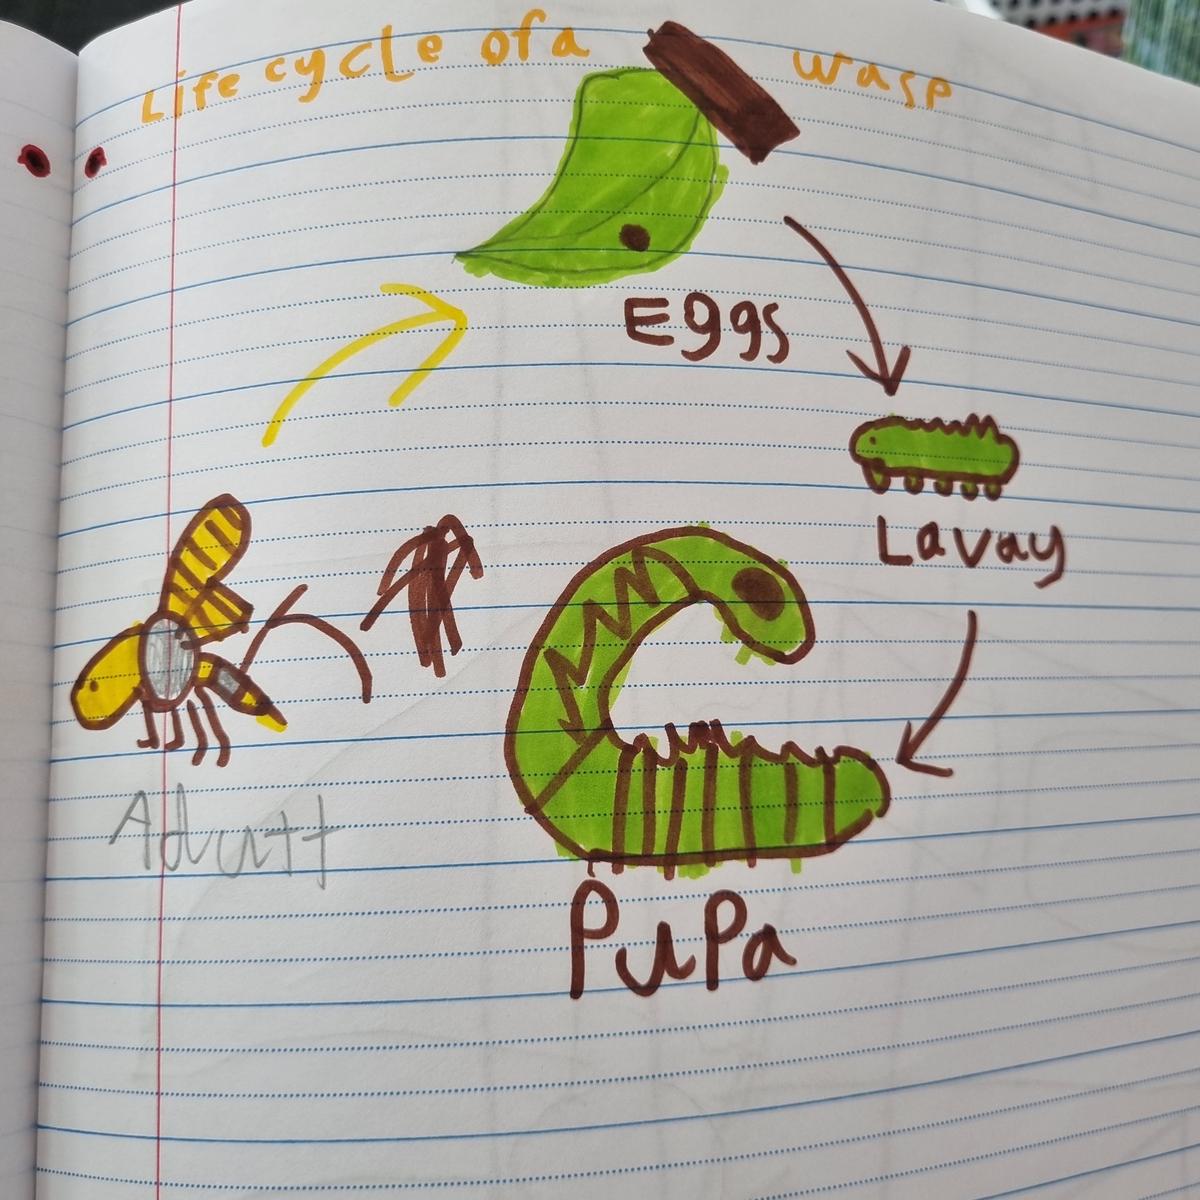 Life cycle of a wasp
Eggs
Lavay
Pupa
Adutt